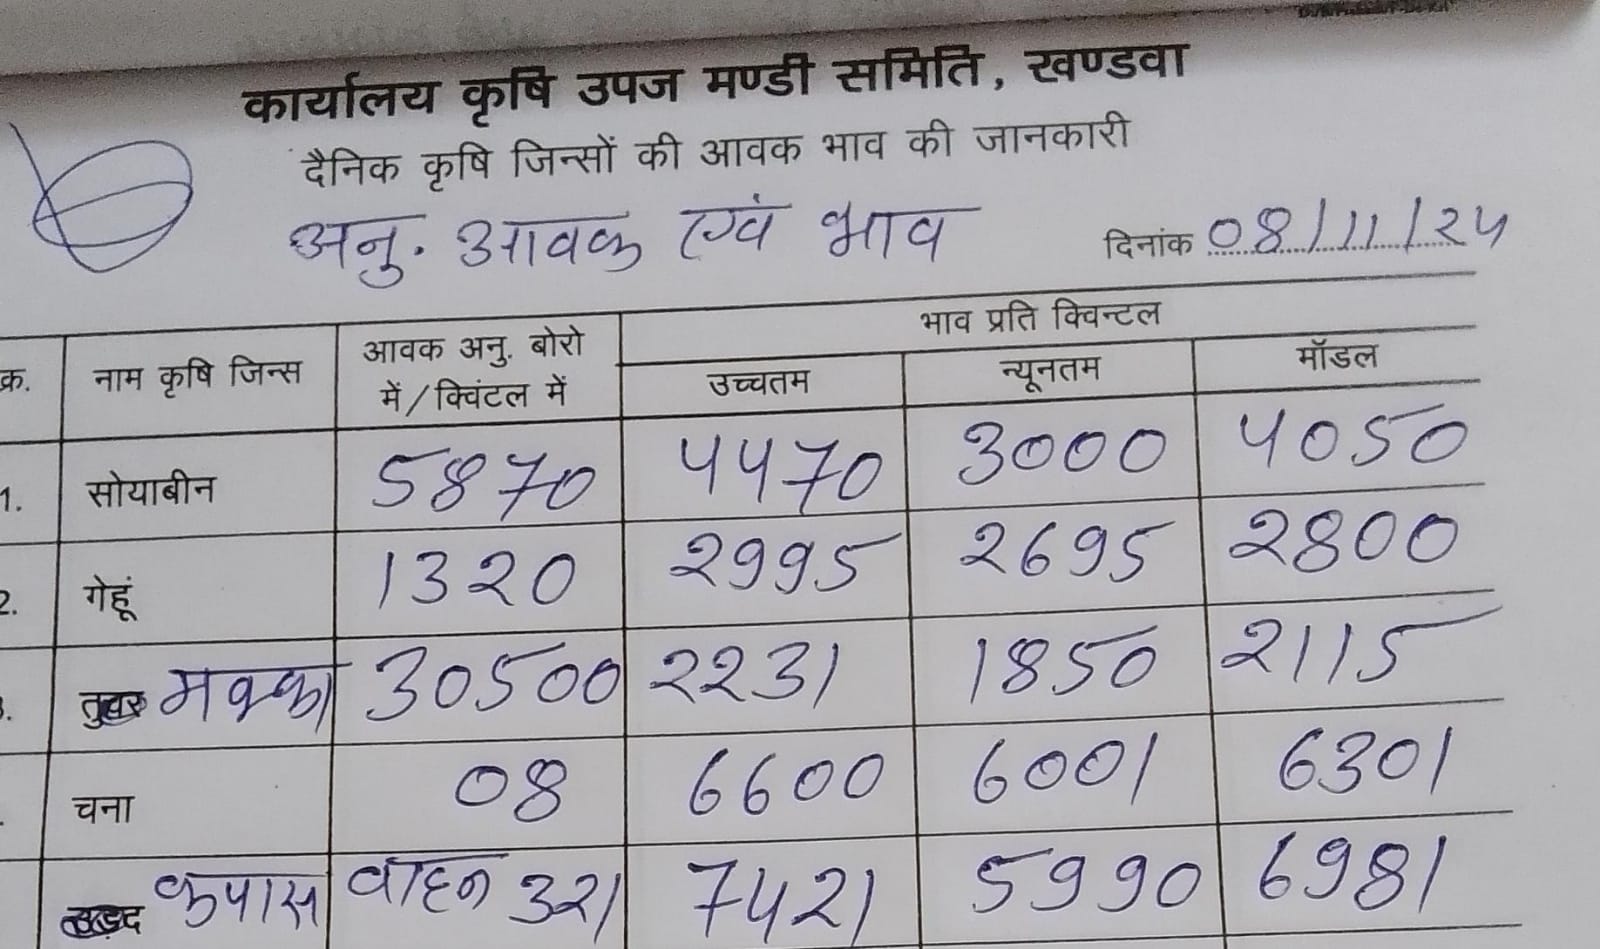 कार्यालय कृषि उपज मण्डी समिति, खण्डवा
दैनिक कृषि जिन्सों की आवक भाव की जानकारी
अनु. आवक एवं भाव दिनांक 08/11/24
क्र. नाम कृषि जिन्स आवक अनु. बोरो में/क्विंटल में भाव प्रति क्विन्टल
उच्चतम न्यूनतम मॉडल
1. सोयाबीन 5870 4470 3000 4050
2. गेहूं 1320 2995 2695 2800
3. तुवर मक्का 30500 2231 1850 2115
चना 08 6600 6001 6301
उड़द कपास वाहन 321 7421 5990 6981